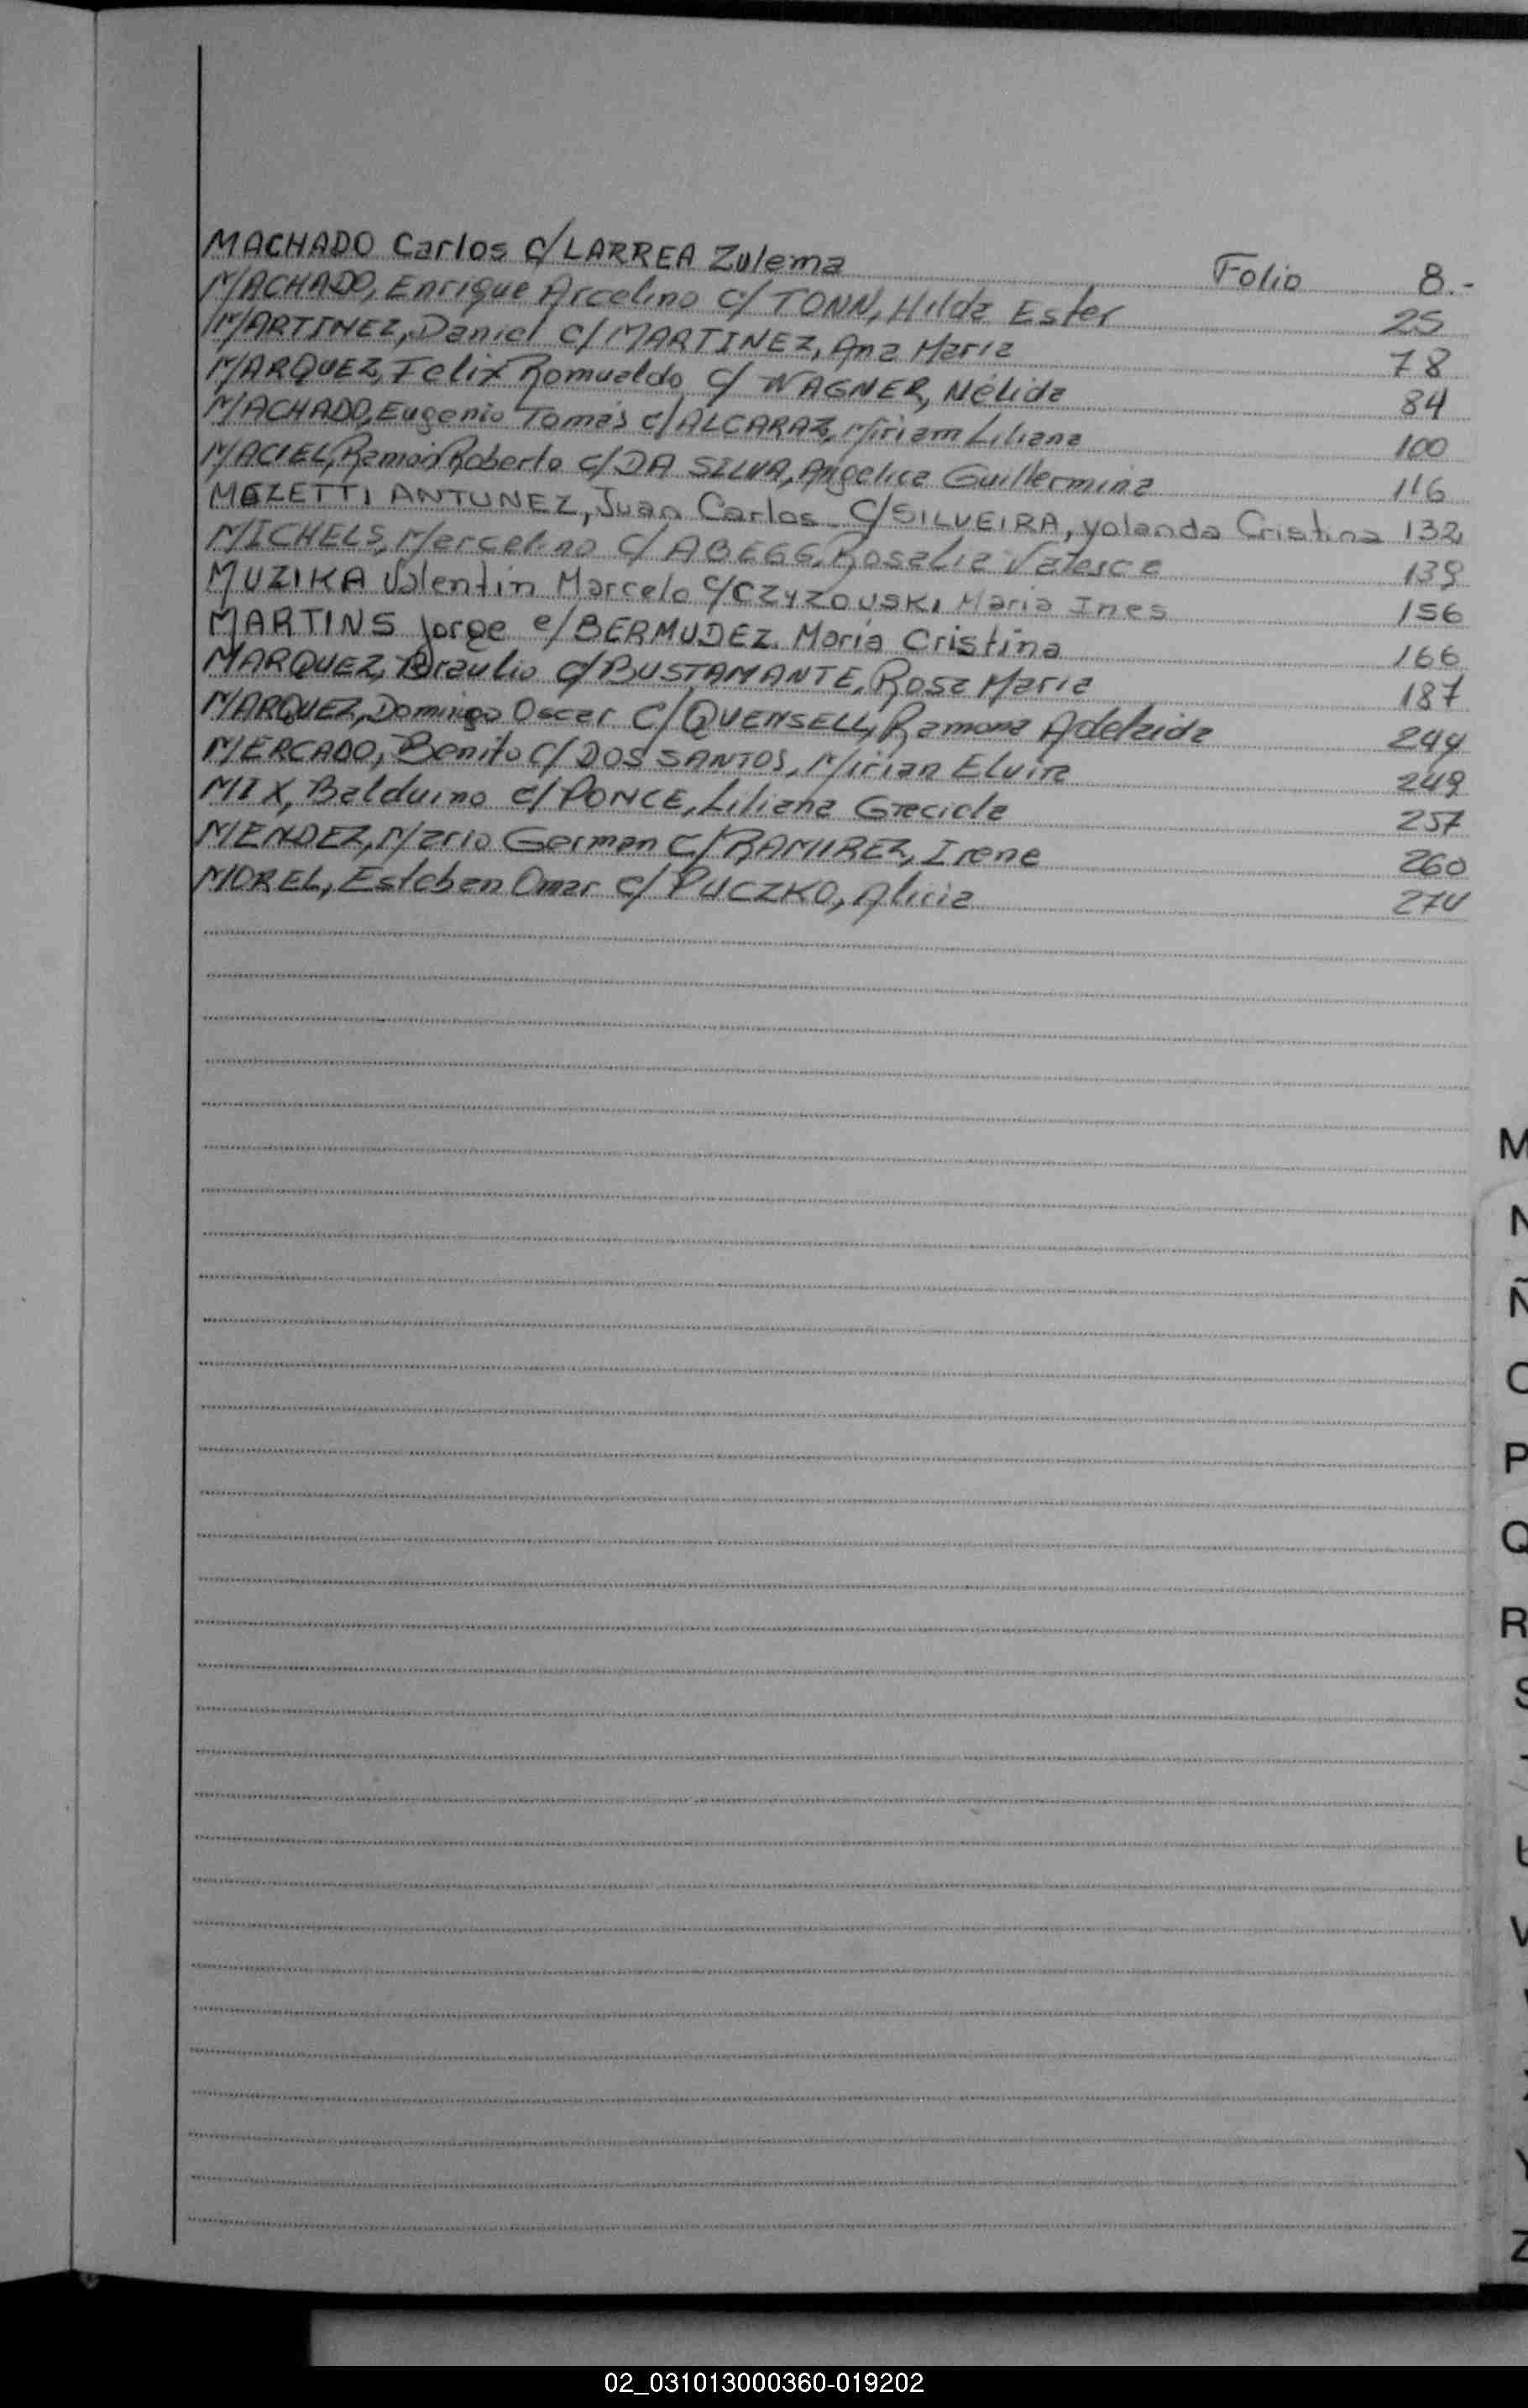 MACHADO Carlos C/LARREA Zulema Folio 8.-
MACHADO, Enrique Arcelino C/ TONN, Hilda Ester 25
MARTINEZ, Daniel C/ MARTINEZ, Ana Maria 78
MARQUEZ, Felix Romualdo C/ WAGNER, Nélida 84
MACHADO, Eugenio Tomás c/ ALCARAZ, Miriam Liliana 100
MACIEL, Ramón Roberto C/ DA SILVA, Angelica Guillermina 116
MOZETTI ANTUNEZ, Juan Carlos C/ SILVEIRA, yolanda Cristina 132
MICHELS, Marcelino C/ ABEGG, Rosalia Valesca 139
MUZIKA Valentin Marcelo C/ CZYZOUSKI Maria Ines 156
MARTINS Jorge e/ BERMUDEZ. Maria Cristina 166
MARQUEZ, Braulio C/ BUSTAMANTE, Rosa Maria 187
MARQUEZ, Domingo Oscar C/ QUENSELL, Ramona Adelaida 244
MERCADO, Benito C/ DOS SANTOS, Mirian Elvira 249
MIX, Balduino C/ PONCE, Liliana Graciela 257
MENDEZ, Mario German C/ RAMIREZ, Irene 260
MOREL, Esteban Omar C/ PUCZKO, Alicia 274
M
N
Ñ
O
P
Q
R
S
U
V
Y
Z
02_031013000360-019202